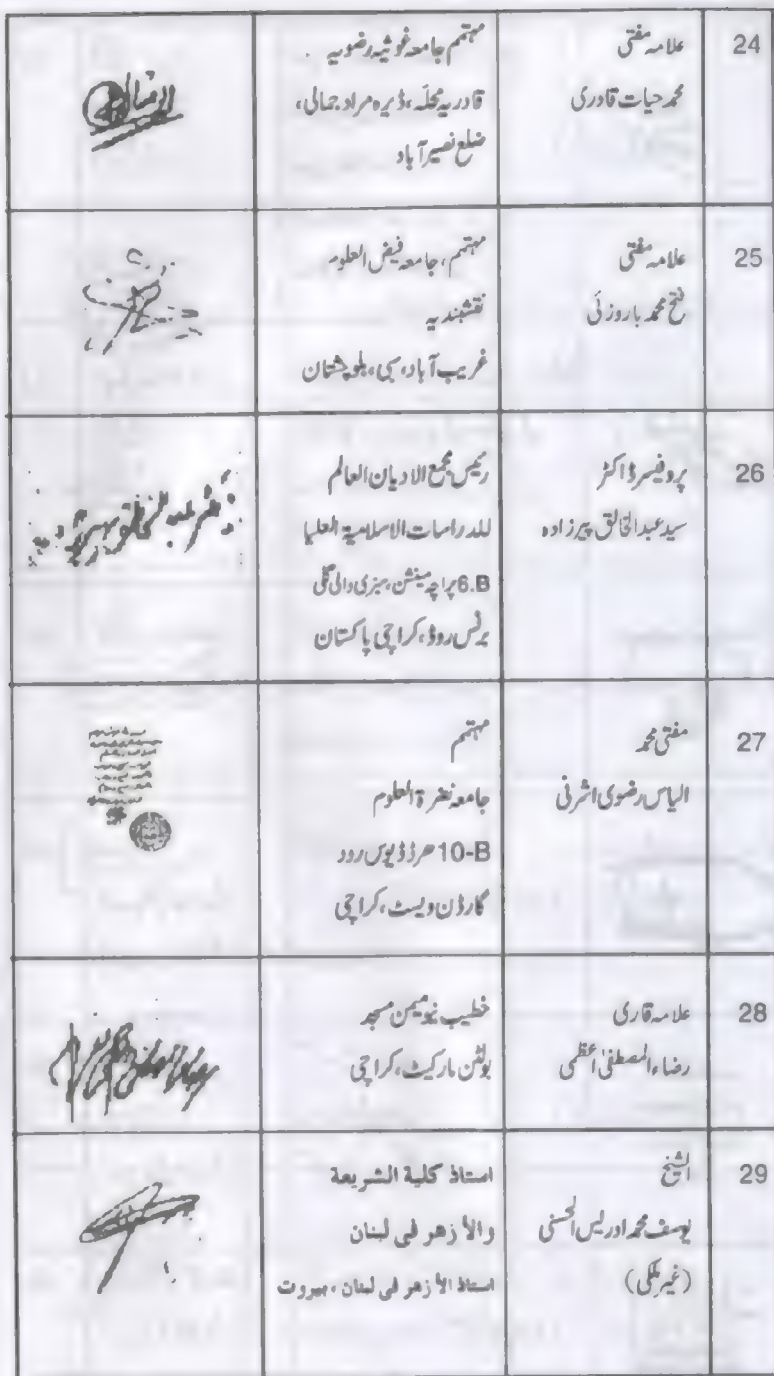 24
علامہ مفتی
محمد حیات قادری
مہتمم جامعہ غوثیہ رضویہ
قادریہ محلّہ، ڈیرہ مراد جمالی،
ضلع نصیر آباد
25
علامہ مفتی
فتح محمد باروزئی
مہتمم، جامعہ فیض العلوم
نقشبندیہ
غریب آباد، سبی، بلوچستان
26
پروفیسر ڈاکٹر
سید عبدالخالق پیرزادہ
رئیس مجمع الادیان العالم
للدراسات الاسلامیۃ العلیا
6.B پراچہ مینشن، سبزی والی گلی
برنس روڈ، کراچی پاکستان
27
مفتی محمد
الیاس رضوی اشرفی
مہتمم
جامعہ نضرۃ العلوم
10-B روڈ
گارڈن ویسٹ، کراچی
28
علامہ قاری
رضاء المصطفیٰ اعظمی
خطیب نیو میمن مسجد
بولٹن مارکیٹ، کراچی
29
الشیخ
یوسف محمد ادریس الحسنی
(غیر ملکی)
استاذ كلية الشريعة
والأزهر في لبنان
استاذ الأزهر في لبنان، بيروت